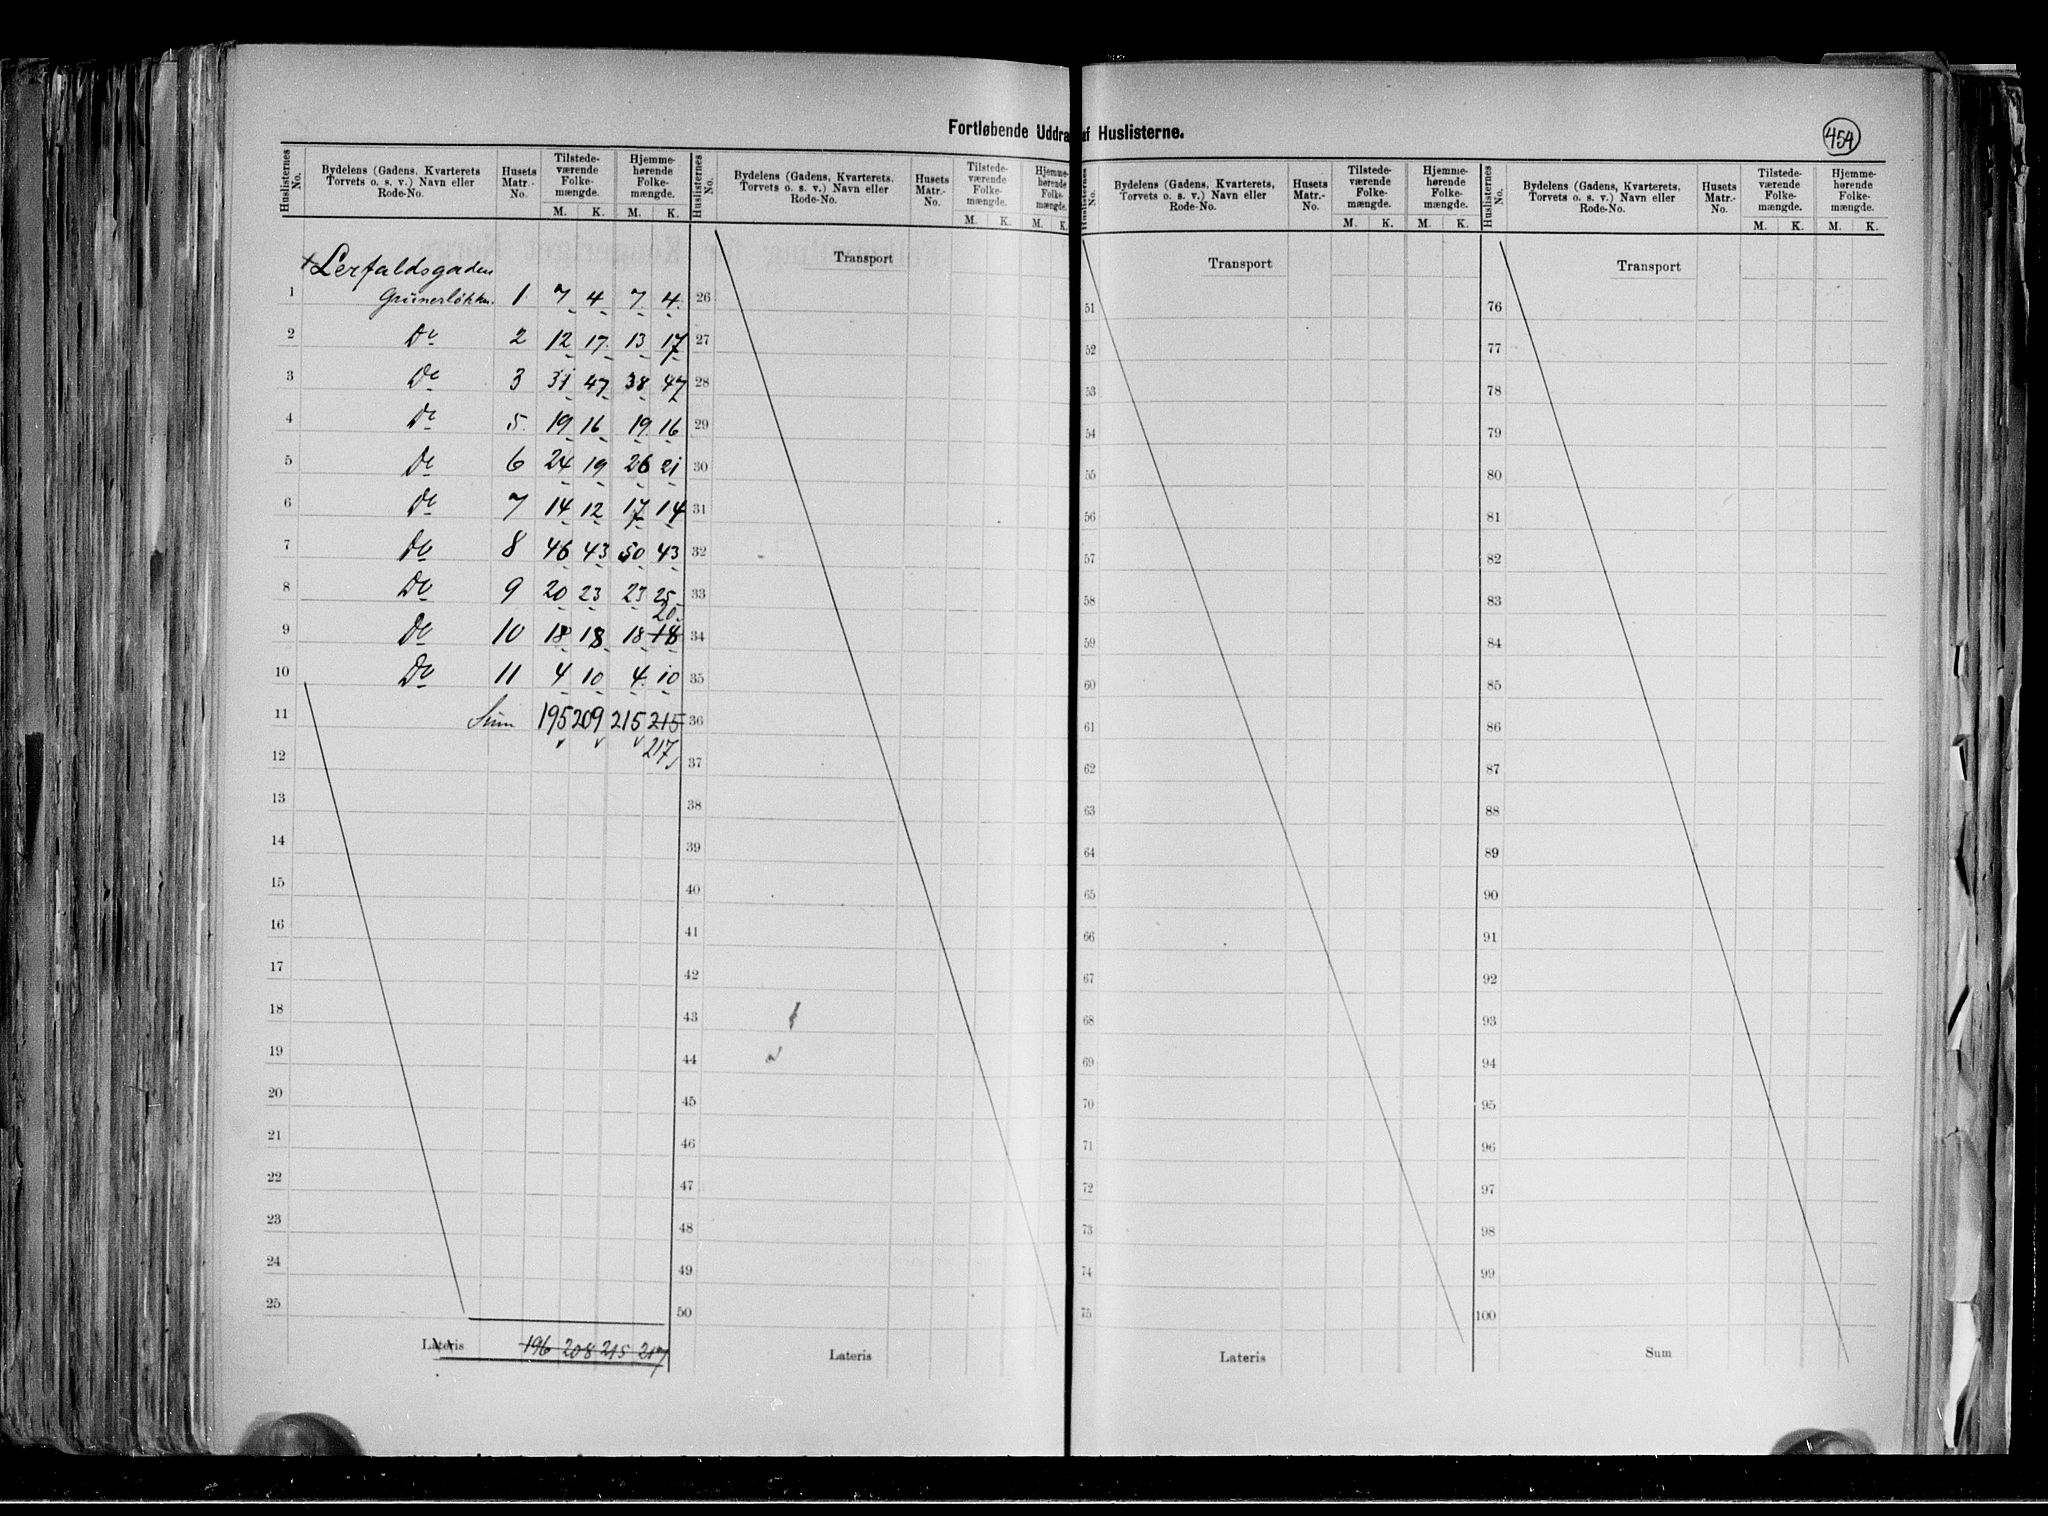 Fortløbende Uddra af Huslisterne.
454
Huslisternes No. Bydelens (Gadens, Kvarterets Torvets o. s. v.) Navn eller Rode-No. Husets Matr.-No. Tilstedeværende Folkemængde. M. K. Hjemmehørende Folkemængde. M. K.
Lerfaldsgaden
1 Grünerløkken. 1 7 4 7 4
2 Do 2 12 17 13 17
3 Do 3 31 47 38 47
4 Do 5 19 16 19 16
5 Do 6 24 19 26 21
6 Do 7 14 12 17 14
7 Do 8 46 43 50 43
8 Do 9 20 23 23 25
20
9 Do 10 18 18 18 18
10 Do 11 4 10 4 10
11 Sum 195 209 215 215
217
12
13
14
15
16
17
18
19
20
21
22
23
24
25
Lateris 196 208 215 217
Huslisternes No. Bydelens (Gadens, Kvarterets, Torvets o. s. v.) Navn eller Rode-No. Husets Matr.-No. Tilstedeværende Folkemængde. M. K. Hjemmehørende Folkemængde. M. K.
Transport
26
27
28
29
30
31
32
33
34
35
36
37
38
39
40
41
42
43
44
45
46
47
48
49
50
Lateris
No. Bydelens (Gadens, Kvarterets, Torvets o. s. v.) Navn eller Rode-No. Husets Matr.-No. Tilstedeværende Folkemængde. M. K. Hjemmehørende Folkemængde. M. K.
Transport
51
52
53
54
55
56
57
58
59
60
61
62
63
64
65
66
67
68
69
70
71
72
73
74
75
Lateris
Huslisternes No. Bydelens (Gadens, Kvarterets, Torvets o. s. v.) Navn eller Rode-No. Husets Matr.-No. Tilstedeværende Folkemængde. M. K. Hjemmehørende Folkemængde. M. K.
Transport
76
77
78
79
80
81
82
83
84
85
86
87
88
89
90
91
92
93
94
95
96
97
98
99
100
Sum